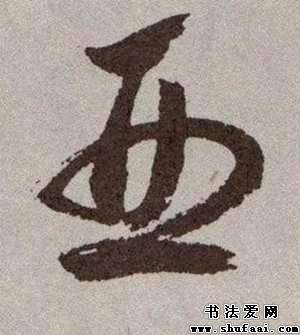 亚
书法爱网
www.shufaai.com